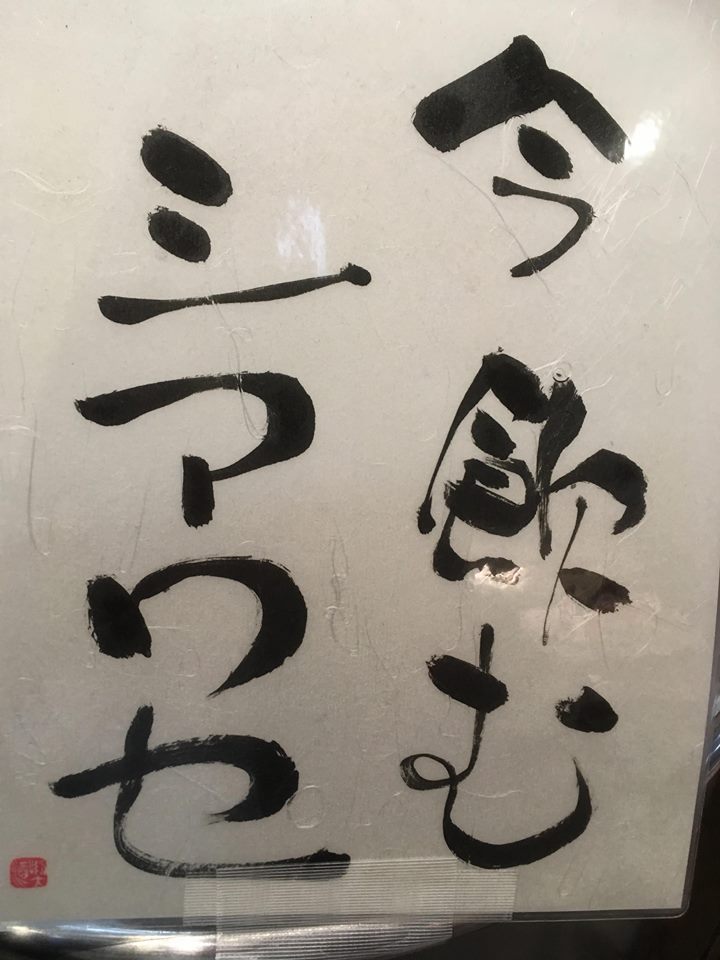 今飲む
シアワセ